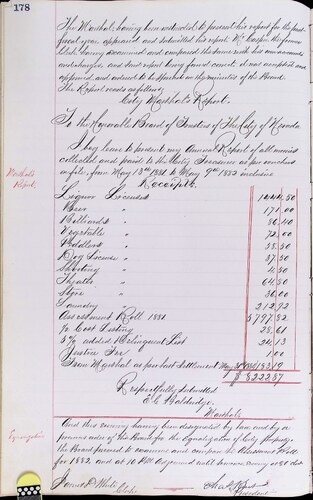 178
The Marshal, having been instructed to present his report for the past
fiscal year, appeared and submitted his report. Mr. Casper the former
Clerk having examined and compared the same with his own accounts
and charges, and said report being found correct, it was accepted and
approved, and ordered to be spread on the minutes of the Board.
The Report reads as follows,
City Marshal's Report.
To the Honorable Board of Trustees of The City of Nevada.
I beg leave to present my Annual Report of all monies
collected and paid to the City Treasurer as per vouchers
on file, from May 13th 1881, to May 9th 1882 inclusive
Marshal's
Report.
Receipts.
Liquor Licenses 1444.50
Beer " 171.00
Billiards " 86.40
Vegetable " 72.00
Peddlers " 38.50
Dog License " 37.50
Shooting " 4.50
Theatre " 64.50
Slate " 36.00
Laundry " 212.92
Assessment Roll 1881 5797.82
To Cost Listing 28.61
5% added Delinquent List 24.13
Justice Fee 1.00
From Marshal as per last Settlement
$ 8222.37
Respectfully Submitted
E. C. Baldridge,
Marshal.
Equalization
And this evening having been designated by law and by a
previous order of the Board for the Equalization of City property,
the Board proceed to examine and compare the Assessment Roll
for 1882, and at 10 P.M. adjourned until tomorrow evening at 8 o'clock
James D. White Clerk
President